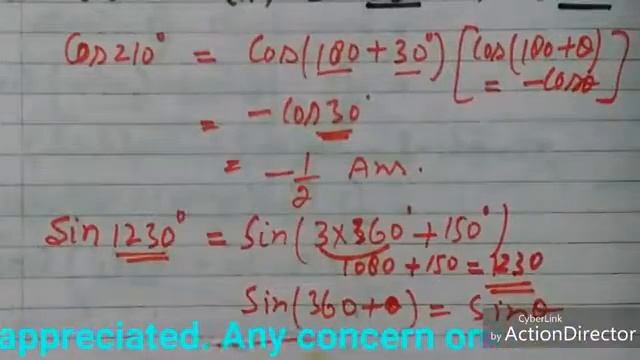 Cos 210° = Cos(180 + 30°) [Cos(180+θ) = -Cosθ]
= - Cos 30°
= - 1/2 Ans.
Sin 1230° = Sin(3×360° + 150°)
1080 + 150 = 1230
Sin(360+θ) = Sinθ
appreciated. Any concern or
CyberLink
by ActionDirector